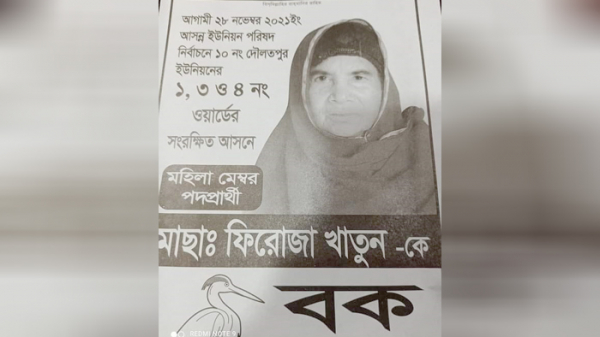 আগামী ২৮ নভেম্বর ২০২১ইং
আসন্ন ইউনিয়ন পরিষদ
নির্বাচনে ১০ নং দৌলতপুর
ইউনিয়নের
১, ৩ ও ৪ নং
ওয়ার্ডের
সংরক্ষিত আসনে
মহিলা মেম্বর
পদপ্রার্থী
মোছাঃ ফিরোজা খাতুন -কে
বক
REDMI NOTE 9